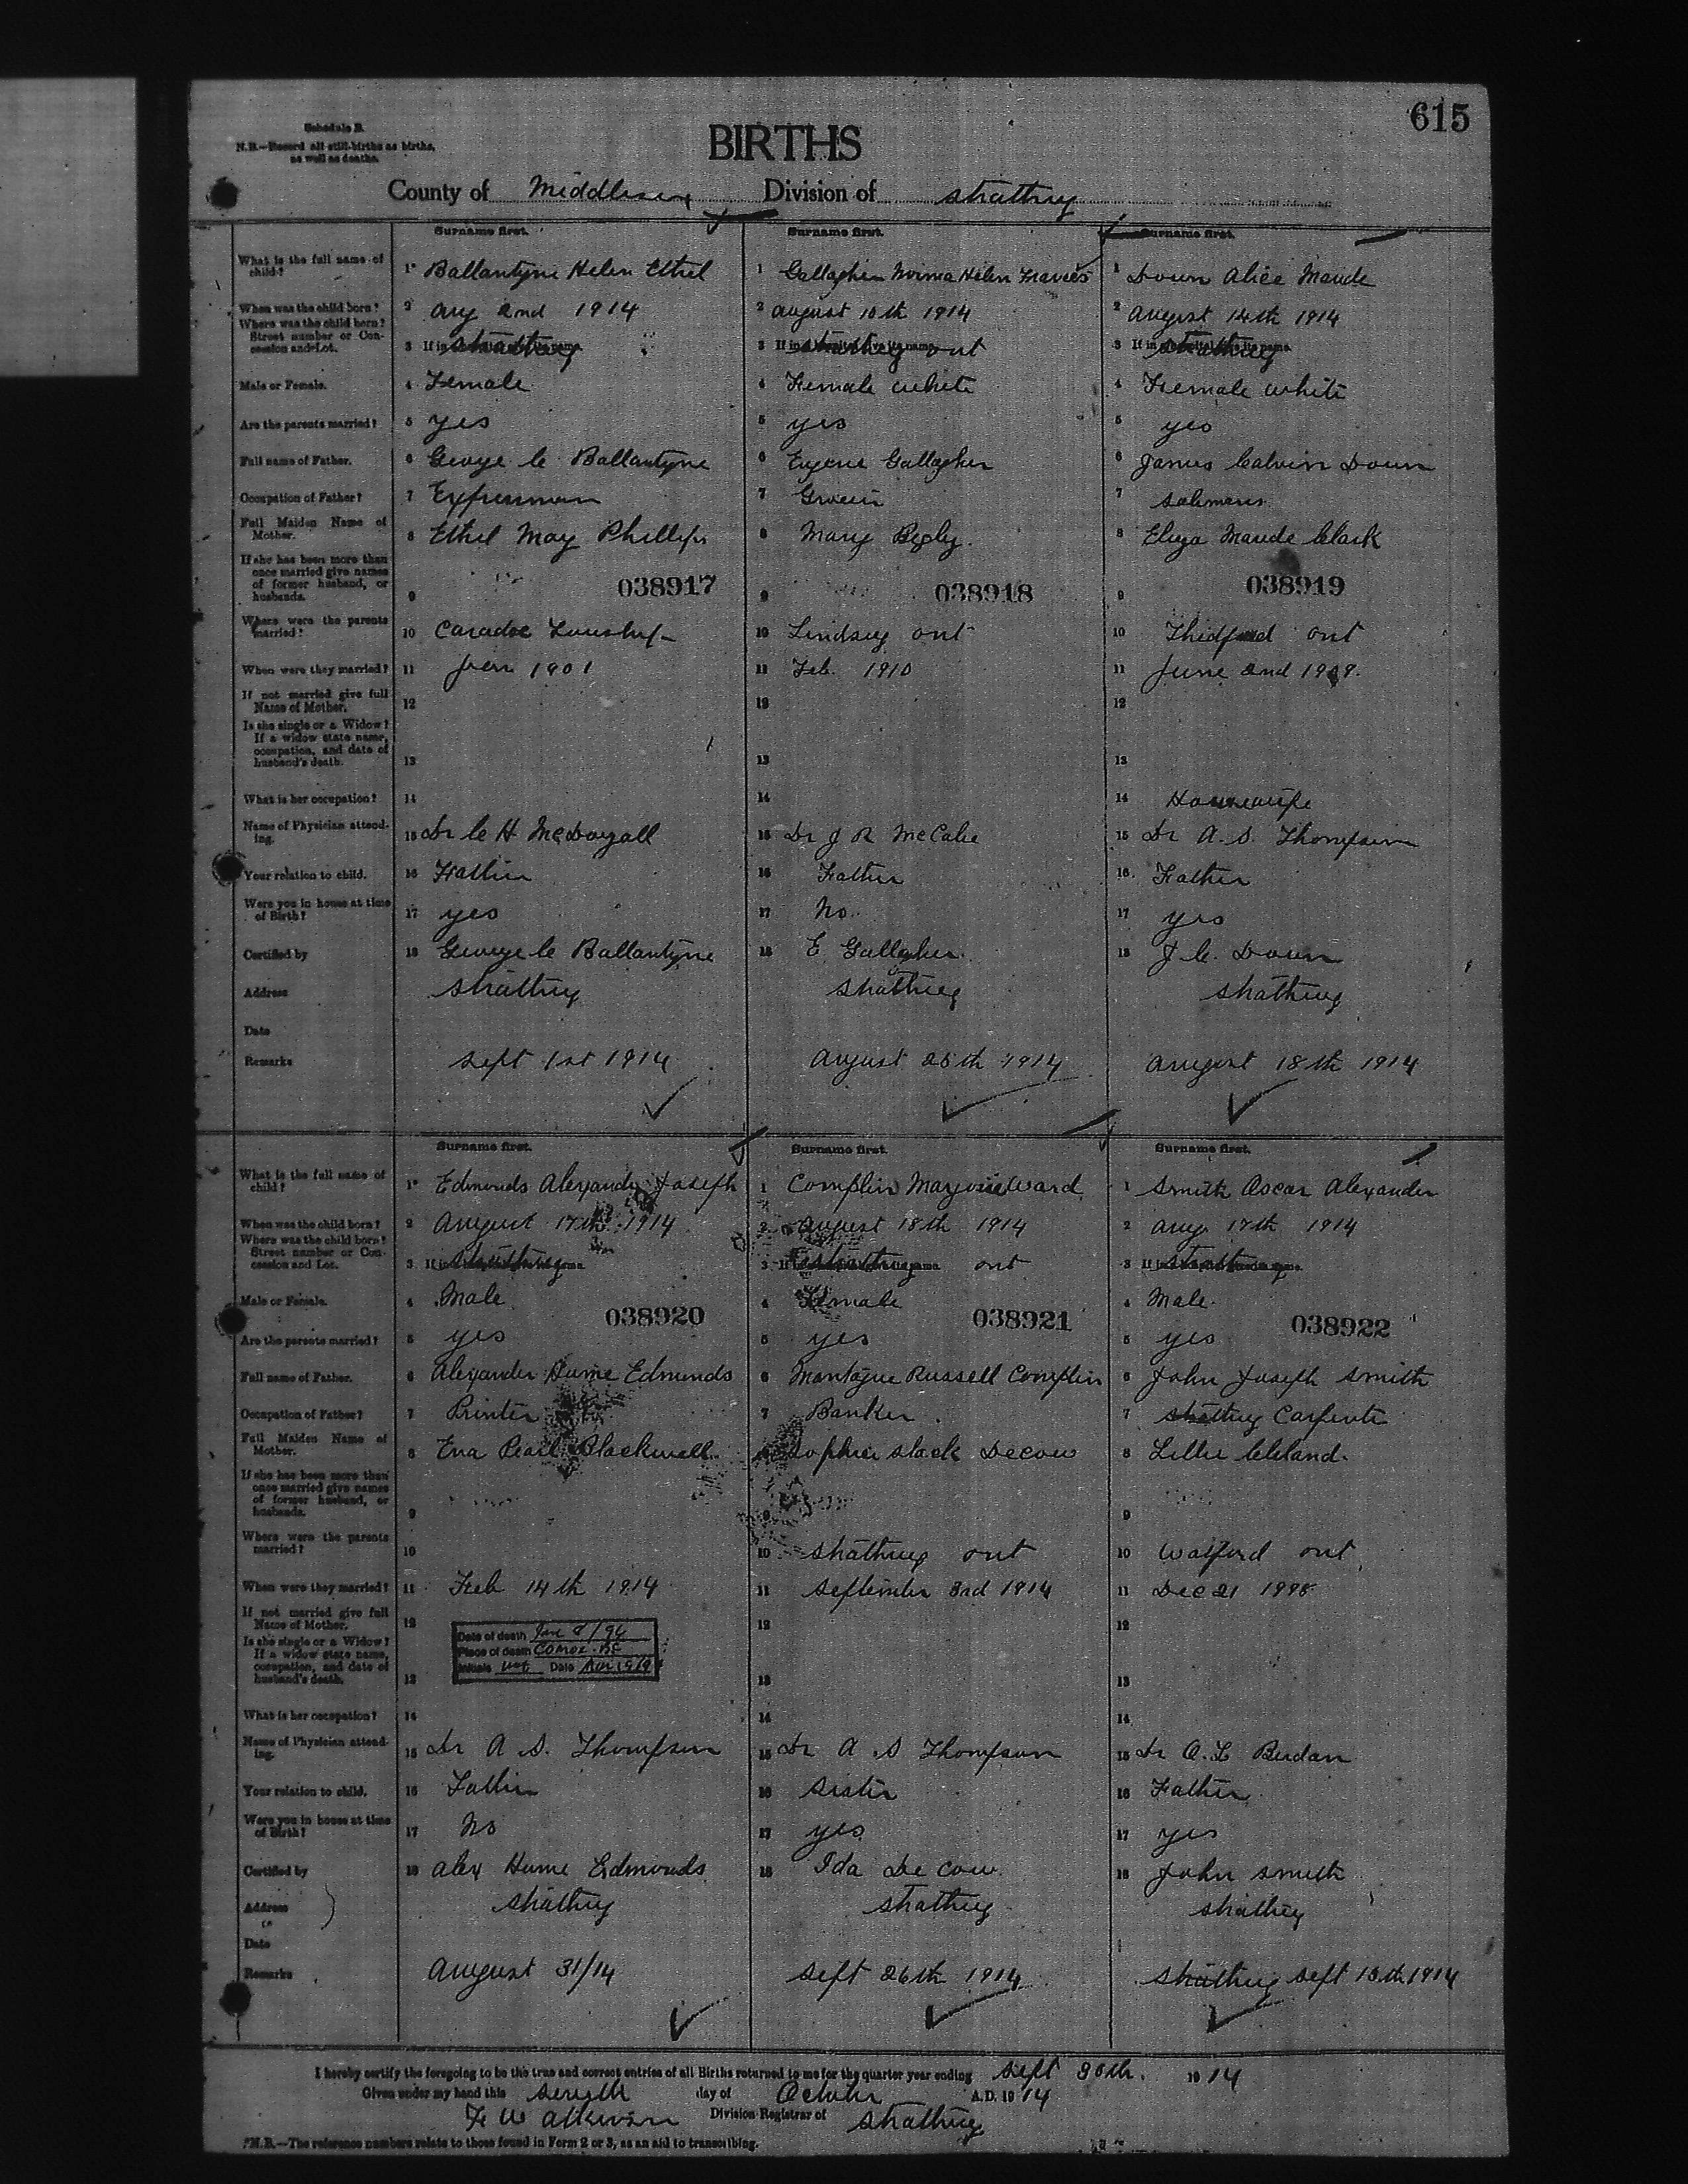 615
Schedule B.
N.B.—Record all still-births as births,
as well as deaths.
BIRTHS
County of Middlesex Division of Strathroy
Surname first. Surname first. Surname first.
What is the full name of child? 1 Ballantyne Helen Ethel 1 Gallagher Norma Helen Frances 1 Down Alice Maude
When was the child born? 2 Aug 2nd 1914 2 August 10th 1914 2 August 14th 1914
Where was the child born? Street number or Concession and Lot. 3 If in a hospital give its name. Strathroy 3 If in a hospital give its name. Strathroy Ont 3 If in a hospital give its name. Strathroy
Male or Female. 4 Female 4 Female white 4 Female white
Are the parents married? 5 yes 5 yes 5 yes
Full name of Father. 6 George C Ballantyne 6 Eugene Gallagher 6 James Calvin Down
Occupation of Father? 7 Expressman 7 Grocer 7 Salesman
Full Maiden Name of Mother. 8 Ethel May Phillips 8 Mary 8 Eliza Maude Clark
If she has been more than once married give names of former husband, or husbands. 9 038917 9 038918 9 038919
Where were the parents married? 10 Caradoc Township 10 Lindsay Ont 10 Thedford Ont
When were they married? 11 1901 11 Feb. 1910 11 June 2nd 1909.
If not married give full Name of Mother. 12 12 12
Is she single or a Widow? If a widow state name, occupation, and date of husband's death. 13 13 13
What is her occupation? 14 14 14 Housewife
Name of Physician attending. 15 Dr C H McDougall 15 Dr J R McCabe 15 Dr A. S. Thompson
Your relation to child. 16 Father 16 Father 16 Father
Were you in house at time of Birth? 17 yes 17 No. 17 yes
Certified by 18 George C Ballantyne 18 E Gallagher 18 J. C. Down
Address Strathroy Strathroy Strathroy
Date
Remarks Sept 1st 1914 August 1914 August 18th 1914
Surname first. Surname first. Surname first.
What is the full name of child? 1 Edmonds Alexander Joseph 1 Complin Marjorie Ward 1 Smith Oscar Alexander
When was the child born? 2 August 17th 1914 2 August 18th 1914 2 Aug 17th 1914
Where was the child born? Street number or Concession and Lot. 3 If in a hospital give its name. Strathroy 3 If in a hospital give its name. Strathroy Ont 3 If in a hospital give its name. Strathroy
Male or Female. 4 Male 038920 4 Female 038921 4 Male 038922
Are the parents married? 5 yes 5 yes 5 yes
Full name of Father. 6 Alexander Hume Edmunds 6 Montague Russell Complin 6 John Joseph Smith
Occupation of Father? 7 Printer 7 Banker 7 Strathroy Carpenter
Full Maiden Name of Mother. 8 Ena Pearl Blackwell 8 Sophia Slack Decow 8 Lillie Cleland.
If she has been more than once married give names of former husband, or husbands. 9 9 9
Where were the parents married? 10 10 Strathroy Ont 10 Watford Ont
When were they married? 11 Feb 14th 1914 11 September 3rd 1914 11 Dec 21
If not married give full Name of Mother. 12 12 12
Date of death Jan 8/94
Place of death Comox. BC
Initials Date
Is she single or a Widow? If a widow state name, occupation, and date of husband's death. 13 13 13
What is her occupation? 14 14 14
Name of Physician attending. 15 Dr A S. Thompson 15 Dr A S Thompson 15 Dr O. L Berdan
Your relation to child. 16 Father 16 Sister 16 Father
Were you in house at time of Birth? 17 No 17 yes 17 yes
Certified by 18 Alex Hume Edmonds 18 Ida De Cow 18 John Smith
Address Strathroy Strathroy Strathroy
Date
Remarks August 31/14 Sept 26th 1914 Strathroy Sept 1914
I hereby certify the foregoing to be the true and correct entries of all Births returned to me for the quarter year ending Sept 30th. 1914
Given under my hand this seventh day of October A.D. 1914
F W Atkinson Division Registrar of Strathroy
*N.B.—The reference numbers relate to those found in Form 2 or 3, as an aid to transcribing.